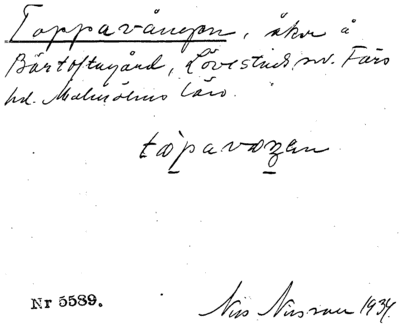 Toppavången, åker å
Bärtoftagård, Lövestads sn. Färs
hd. Malmöhus län.
tòpavaŋen
Nr 5589.
Nils Nilsson 1934.